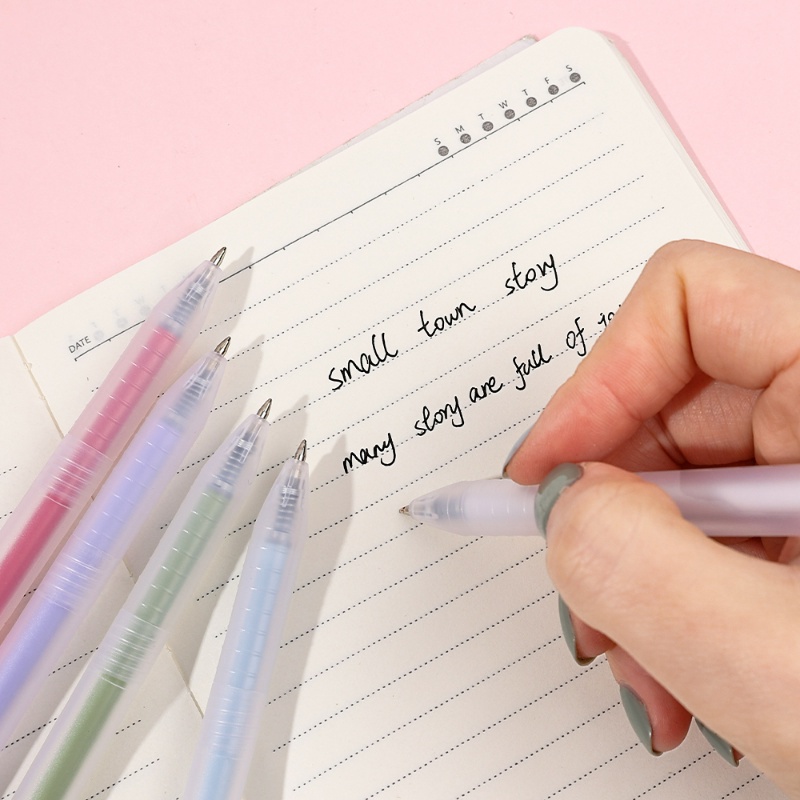 S M T W T F S
DATE
small town story
many story are full of